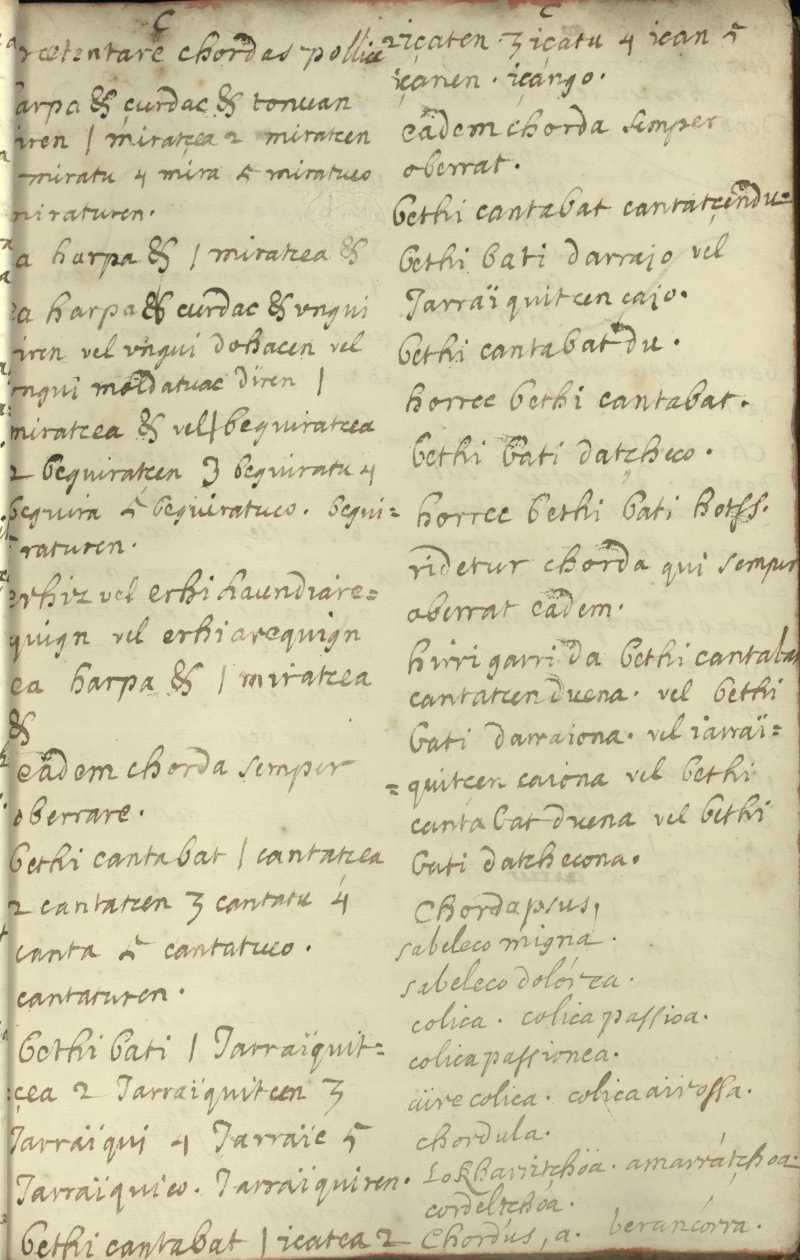 C
rætentare chordas pollice
harpa & çurdac & tonuan
iren / miratcea 2 miratcen
miratu 4 mira 5 miratuco
miraturen.
a harpa & / miratcea &
ea harpa & curdac & vngui
iren vel vngui dohacen vel
vngui moldatuac diren /
miratcea & vel / beguiratcea
2 beguiratcen 3 beguiratu 4
beguira 5 beguiratuco. begui=
raturen.
erhiz vel erhi haundiare=
quign vel erhiarequign
ea harpa & / miratcea
&
eâdem chorda semper
oberrare.
bethi cantabat / cantatcea
2 cantatcen 3 cantatu 4
canta 5 cantatuco.
cantaturen.
bethi bati / Jarraïquit=
çea 2 Jarraïquitcen 3
Jarraïqui 4 Jarraïc 5
Jarraïquico. Jarraïquiren.
bethi cantabat / icatea 2
C
2 içaten 3 içatu 4 ican 5
içanen. içango.
eâdem chorda semper
oberrat.
bethi cantabat cantatcendu
bethi bati darrajo vel
Jarraïquitcen çajo.
bethi cantabat du.
horrec bethi cantabat.
bethi bati datzheco.
horrec bethi bati hotss.
ridetur chorda qui semper
oberrat eâdem.
hirrigarri da bethi cantabat
cantatcen duena. vel bethi
bati darraiona. vel iarraï=
=quitcen caiona vel bethi
cantabat duena vel bethi
bati datzhecona.
Chordapsus,
sabeleco migna.
sabeleco dolórea.
colica. colica passioa.
colica passionea.
aire colica. colica airossa.
chordula.
Lokharritchöa. amarrátçhoa.
cordeltchóa.
Chordus, a. berancorra.